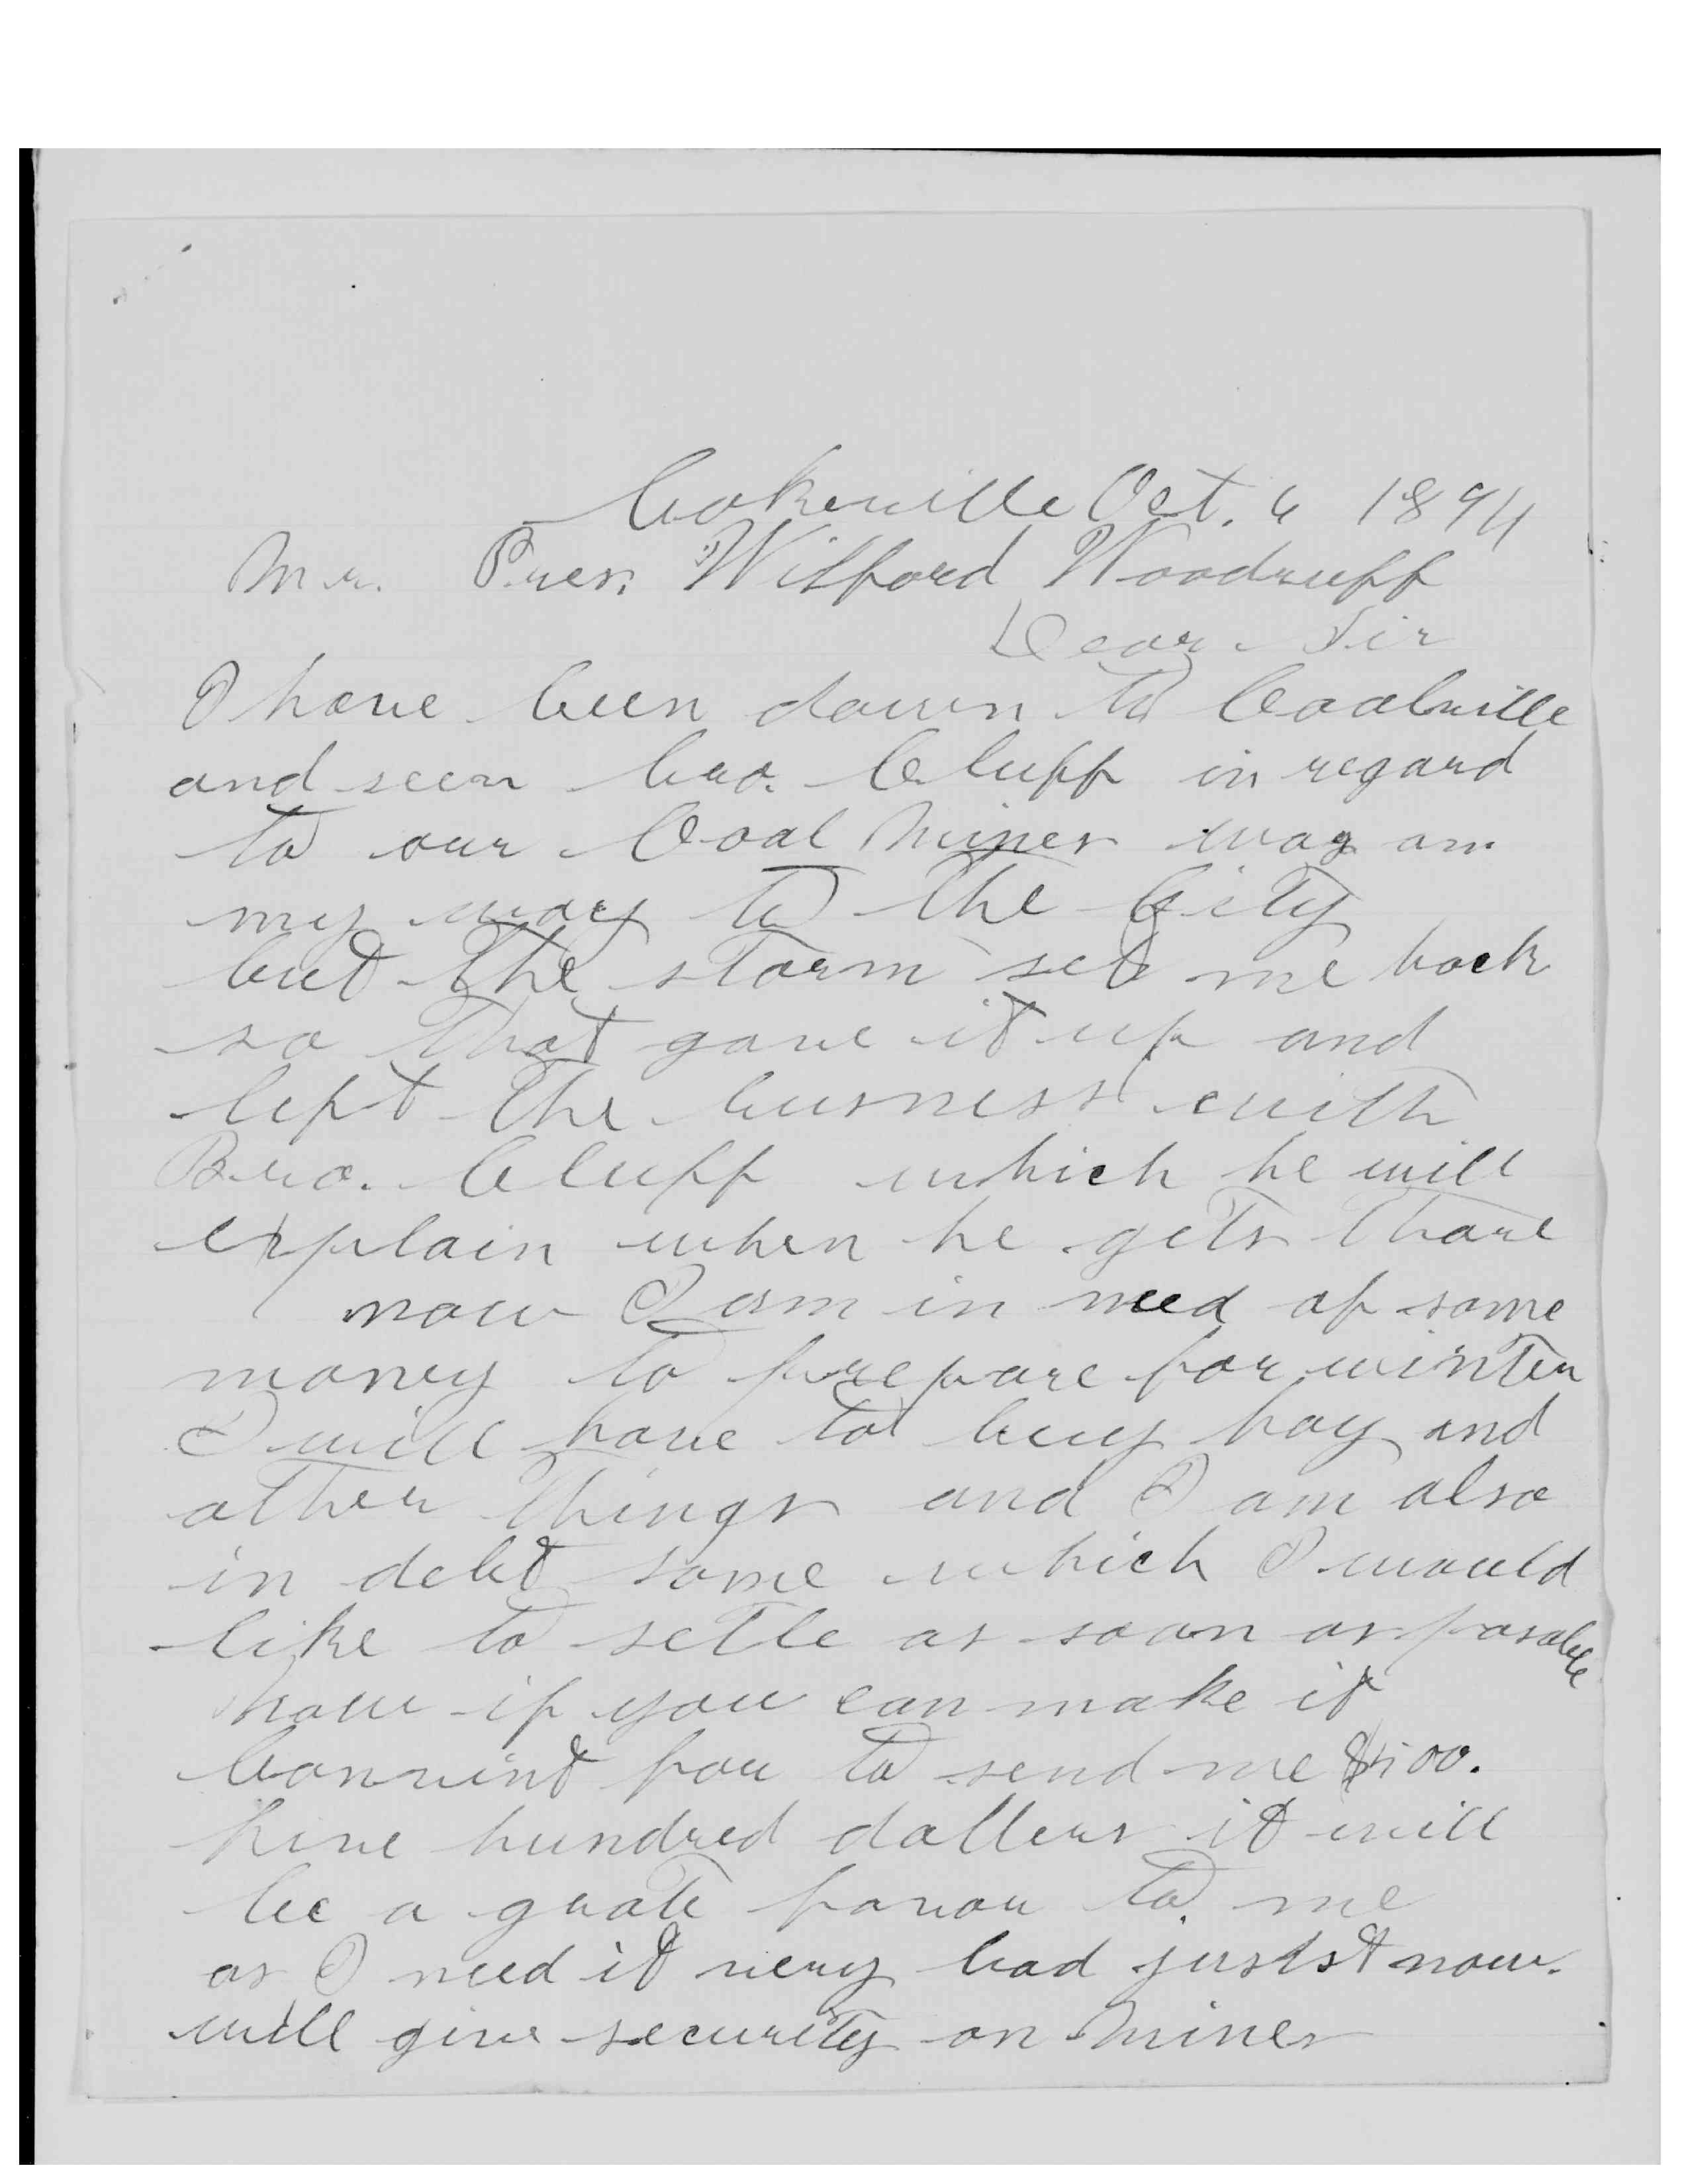 Cokeville Oct. 6 1894
Mr. Pres. Wilford Woodruff
Dear Sir
I have been down to Coalville
and seen bro. Cluff in regard
to our Coal Mines was on
my way to the City
but the storm set me back
so that gave it up and
left the busness with
Bro. Cluff which he will
explain when he gets thare
now I am in need of some
money to prepare for winter
I will have to buy hay and
other things and I am also
in debt some which I would
like to setle as soon as posable
now if you can make it
convint for to send me $500.
Five hundred dollers it will
be a grate favor to me
as I need it very bad just now.
will give security on Mines